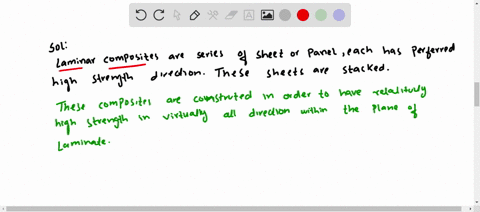 Sol:
Laminar composites are series of sheet or panel, each has perferred
high strength direction. These sheets are stacked.
These composites are constructed in order to have relatively
high strength in virtually all direction within the plane of
Laminate.